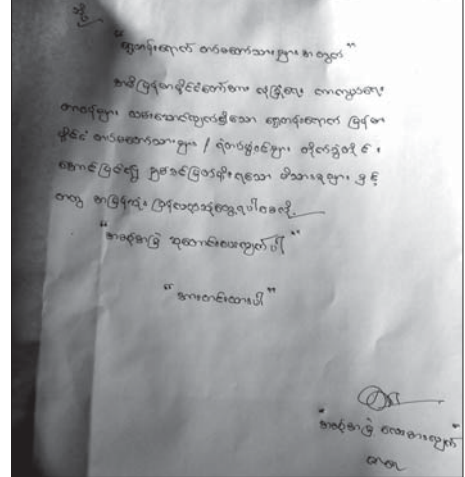 သို့
"ရှေ့တန်းရောက် တပ်မတော်သားများ အတွက်"
အမိမြန်မာနိုင်ငံတော်အား လုံခြုံရေး ကာကွယ်ရေး
တာဝန်များ ထမ်းဆောင်လျှက်ရှိသော ရှေ့တန်းရောက် မြန်မာ
နိုင်ငံ တပ်မတော်သားများ / ရဲတပ်ဖွဲ့ဝင်များ တိုက်ပွဲတိုင်း
အောင်မြင်၍ မိသားစုများ နှင့်
အတူ အမြန်ဆုံး ပြန်လည်ဆုံတွေ့ရပါစေလို့
"အစဉ်အမြဲ ဆုတောင်းပေးလျှက်ပါ"
"အားတင်းထားပါ"
"အစဉ်အမြဲ လေးစားလျှက်"